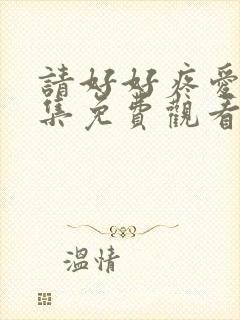 請好好疼愛
集免費觀看
溫情